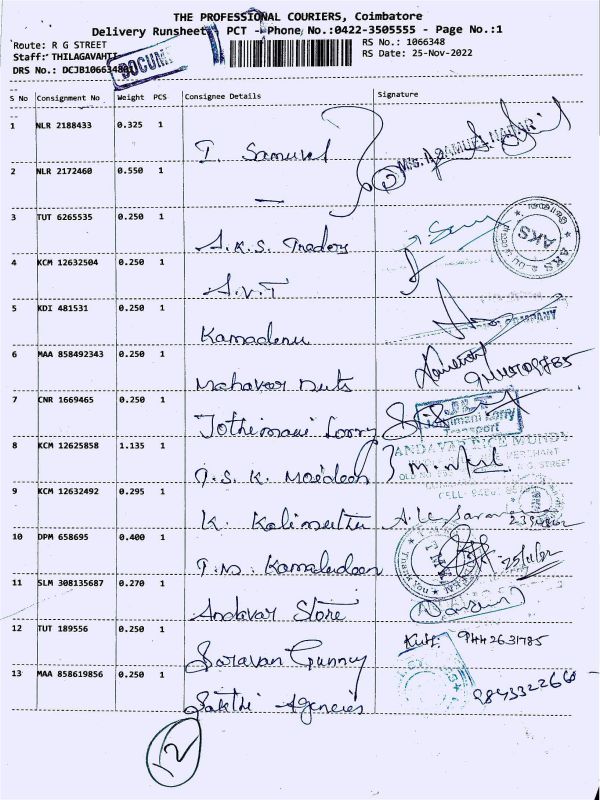 THE PROFESSIONAL COURIERS, Coimbatore
Delivery Runsheet PCT - Phone No.:0422-3505555 - Page No.:1
Route: R G STREET
RS No.: 1066348
Staff: THILAGAVAHTI
RS Date: 25-Nov-2022
DRS No.: DCJB1066348
DOCUM
S No Consignment No Weight PCS Consignee Details Signature
1 NLR 2188433 0.325 1 I. Samuval
2 NLR 2172460 0.550 1 —
3 TUT 6265535 0.250 1 A.K.S. Traders AKS
4 KCM 12632504 0.250 1 A.V.T
5 KDI 481531 0.250 1 Kamadenu
6 MAA 858492343 0.250 1 Mahavar nuts
7 CNR 1669465 0.250 1 Jothimani Lorry
Jothimani Lorry
Transport
8 KCM 12625858 1.135 1 T.S.K. Moideen
ANDAVAR RICE MUNDY
9 KCM 12632492 0.295 1 K. Kalimuthu
10 DPM 658695 0.400 1 T.M. Kamaludeen 25/11/22
11 SLM 308135687 0.270 1 Andavar Store
12 TUT 189556 0.250 1 Saravan Gunny 9442631785
13 MAA 858619856 0.250 1 Sakthi Agencies 9843322660
12